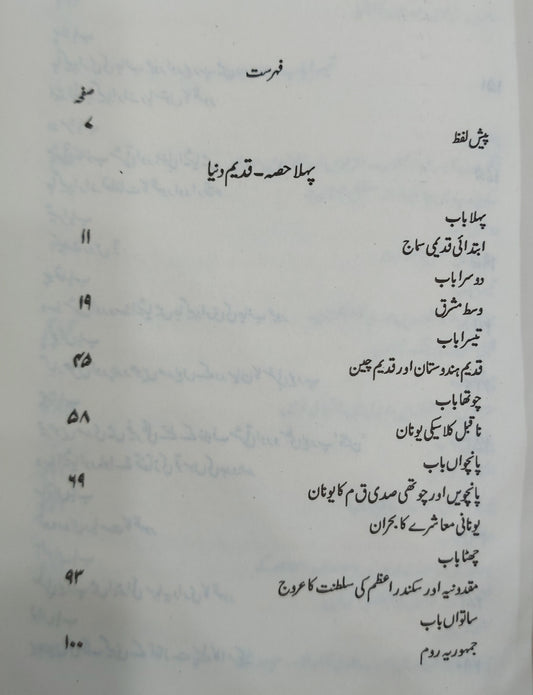 فہرست
صفحہ
پیش لفظ ۷
پہلا حصہ – قدیم دنیا
پہلا باب
ابتدائی قدیمی سماج ۱۱
دوسرا باب
وسط مشرق ۱۹
تیسرا باب
قدیم ہندوستان اور قدیم چین ۴۵
چوتھا باب
ما قبل کلاسیکی یونان ۵۸
پانچواں باب
پانچویں اور چوتھی صدی ق م کا یونان ۶۹
یونانی معاشرے کا بحران
چھٹا باب
مقدونیہ اور سکندر اعظم کی سلطنت کا عروج ۹۳
ساتواں باب
جمہوریہ روم ۱۰۰